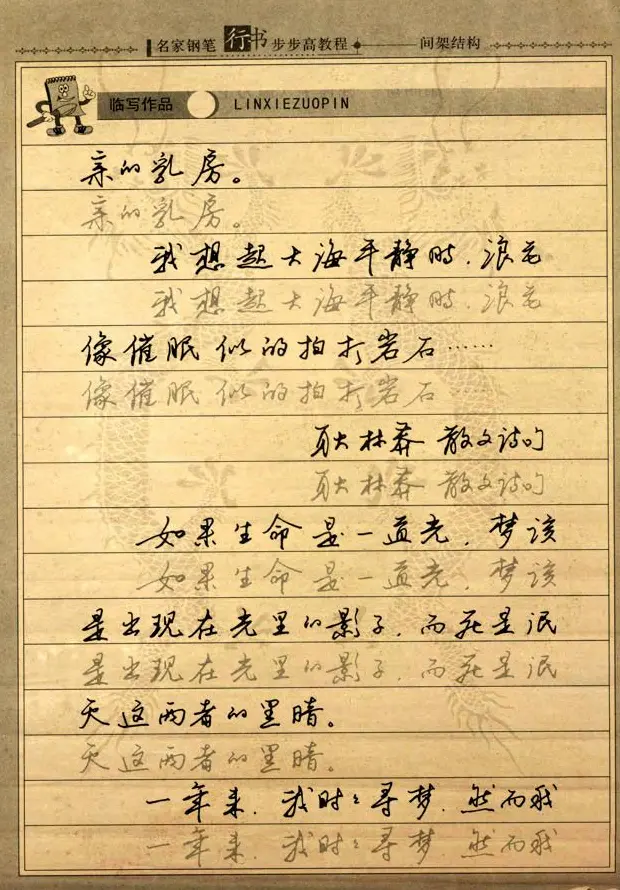 名家钢笔行书步步高教程 间架结构
临写作品 LINXIEZUOPIN
亲的乳房。
亲的乳房。
我想起大海平静时，浪花
我想起大海平静时，浪花
像催眠似的拍打岩石……
像催眠似的拍打岩石……
耿林莽 散文诗句
耿林莽 散文诗句
如果生命是一道光，梦该
如果生命是一道光，梦该
是出现在光里的影子，而死是泯
是出现在光里的影子，而死是泯
灭这两者的黑暗。
灭这两者的黑暗。
一年来，我时时寻梦，然而我
一年来，我时时寻梦，然而我